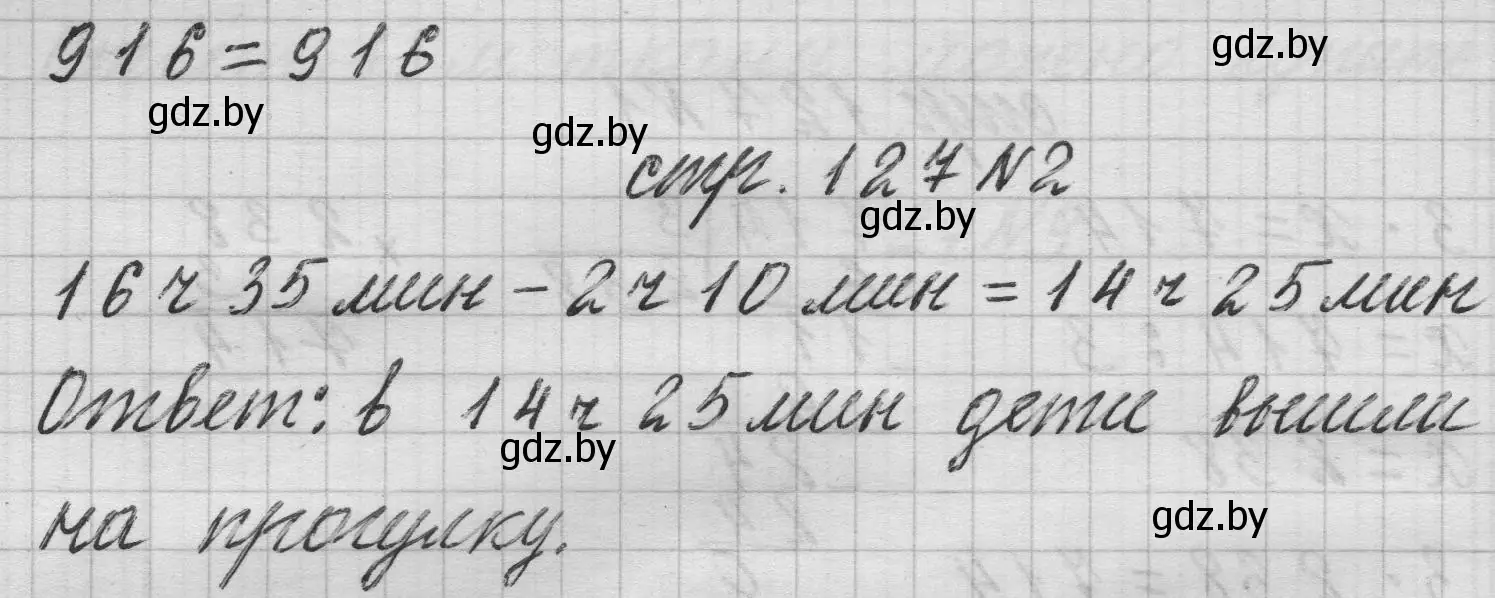 916 = 916
gdz.by
gdz.by
gdz.by
стр. 127 N2
gdz.by
16 ч 35 мин - 2 ч 10 мин = 14 ч 25 мин
Ответ: в 14 ч 25 мин дети вышли
gdz.by
на прогулку.
gdz.by